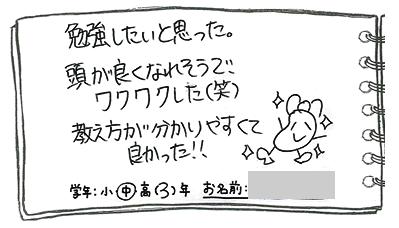 勉強したいと思った。
頭が良くなれそうで、
ワクワクした(笑)
教え方が分かりやすくて
良かった!!
学年:小 中 高(3)年 お名前: